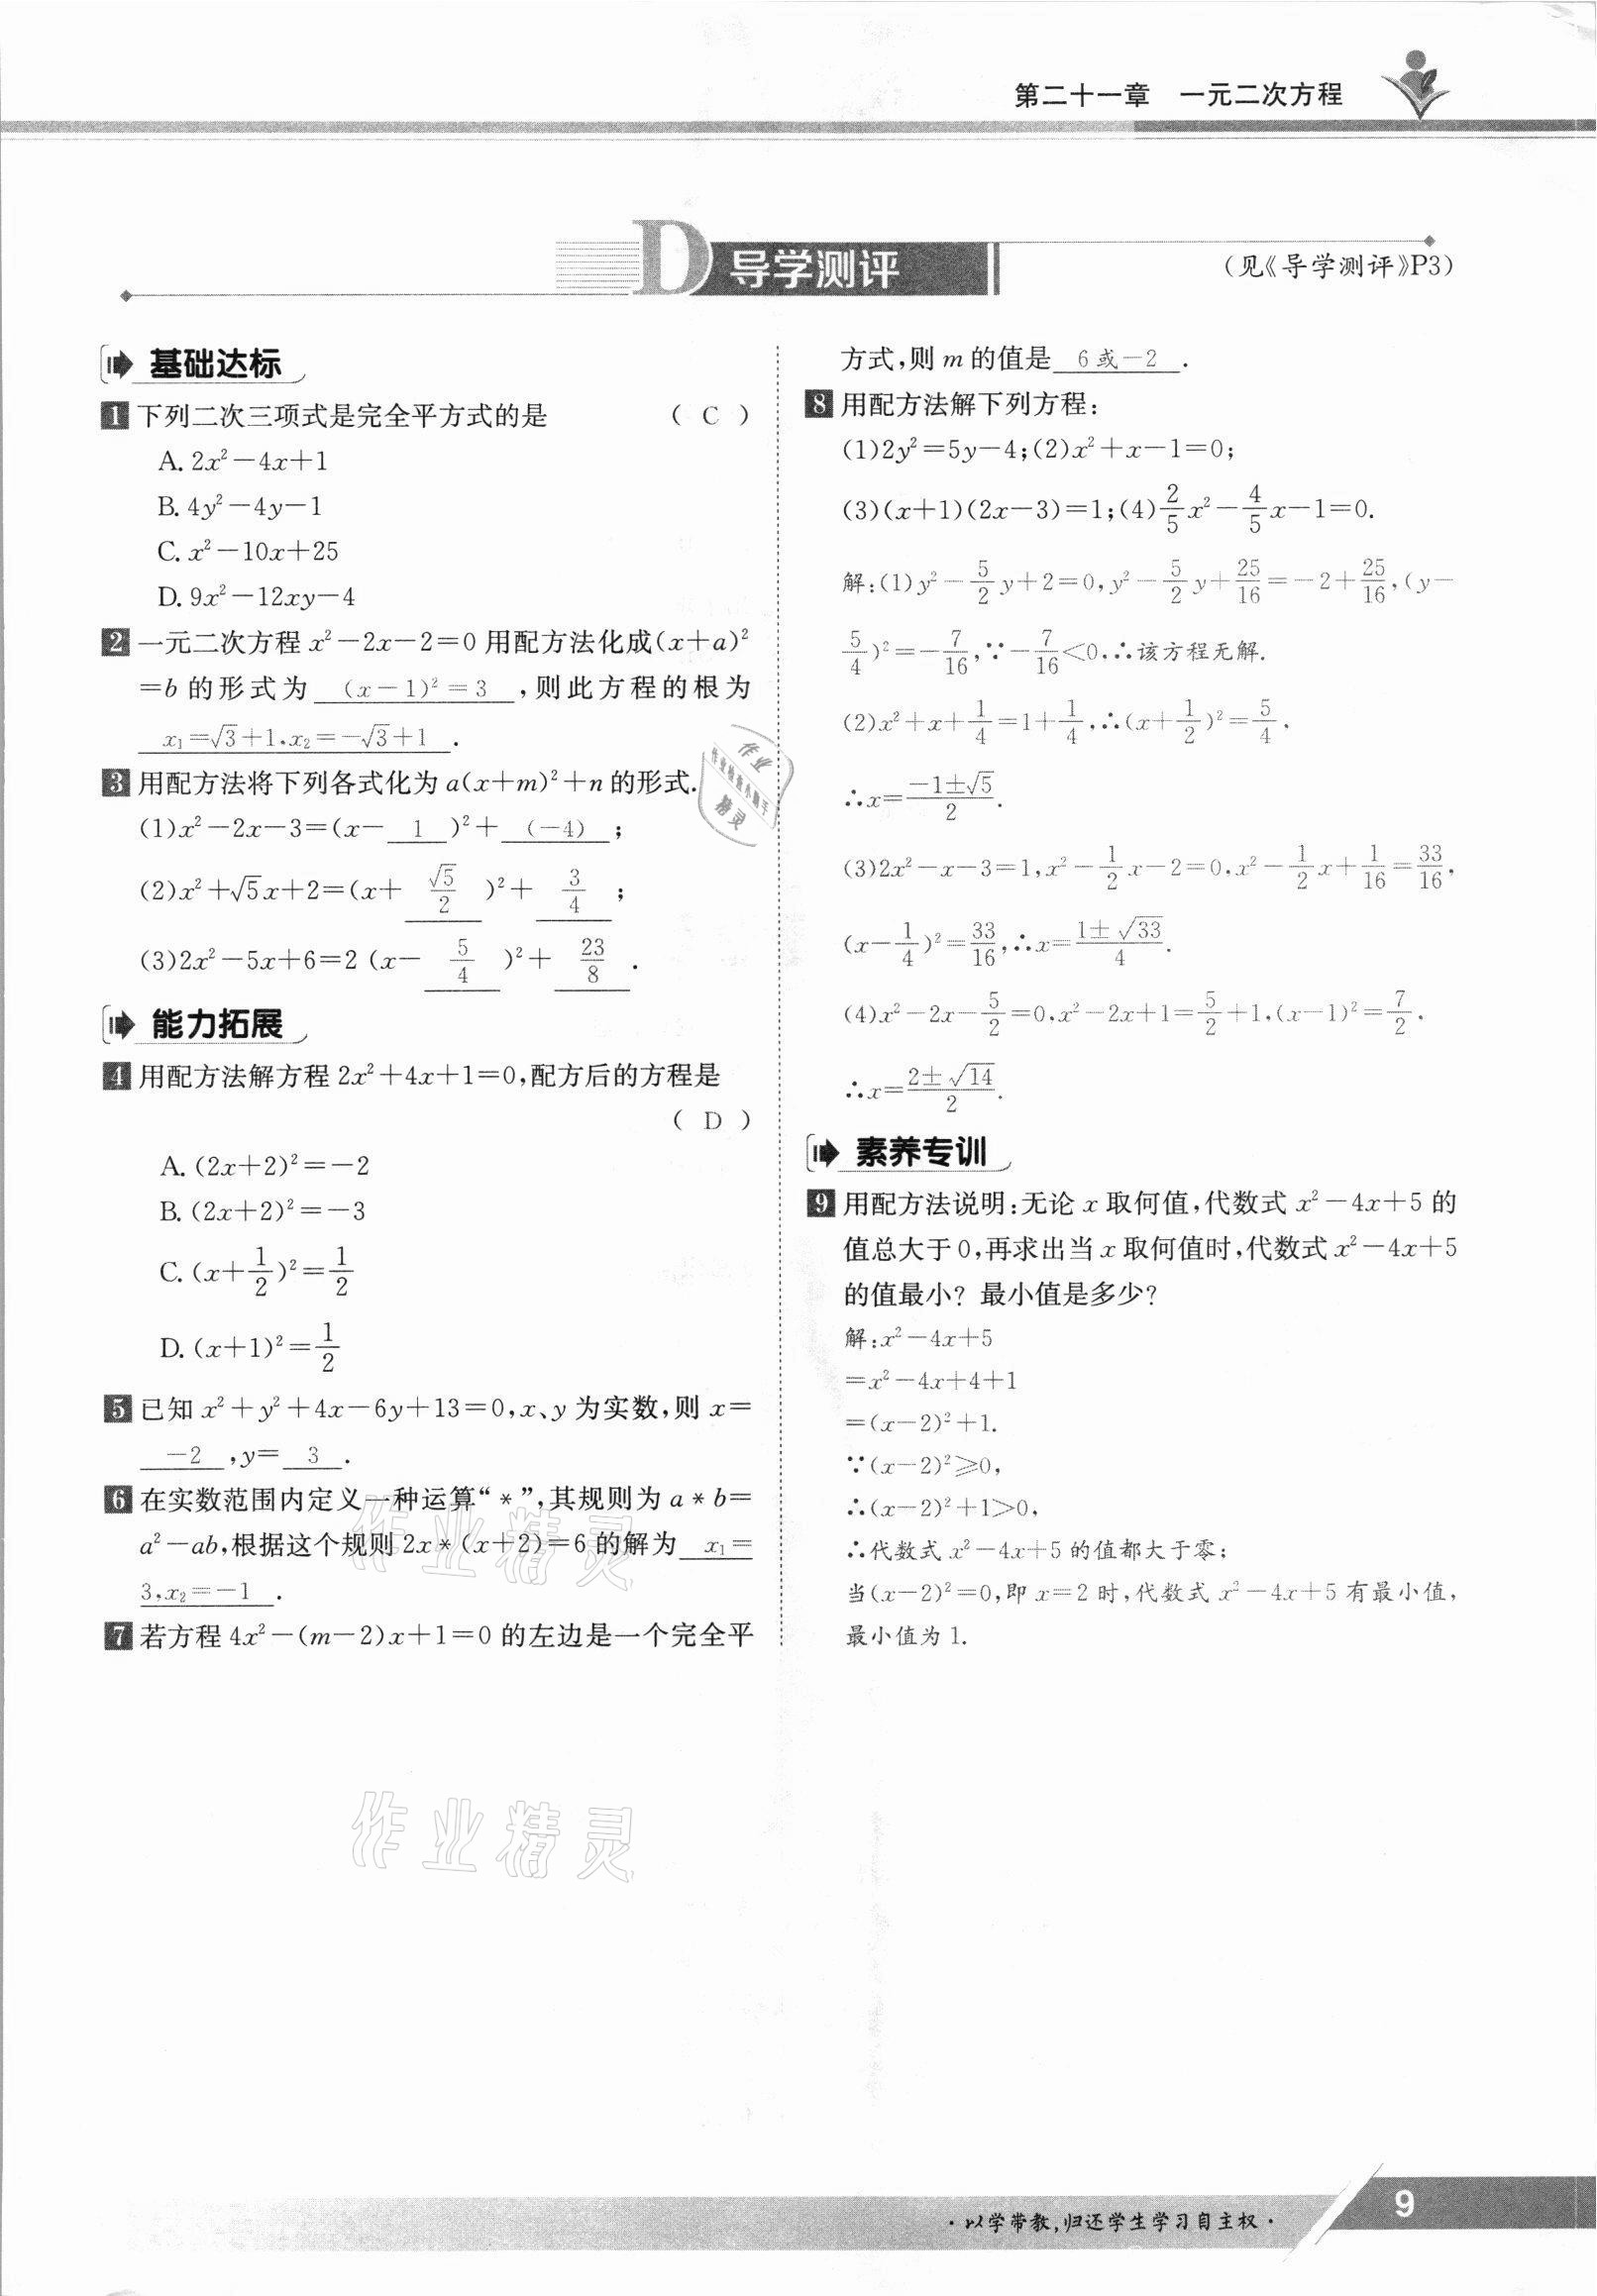 第二十一章 一元二次方程
D 导学测评
(见《导学测评》P3)
基础达标
1 下列二次三项式是完全平方式的是 ( C )
A. 2x²-4x+1
B. 4y²-4y-1
C. x²-10x+25
D. 9x²-12xy-4
2 一元二次方程 x²-2x-2=0 用配方法化成(x+a)²
=b 的形式为 (x-1)²=3 ,则此方程的根为
x₁=√3+1,x₂=-√3+1 .
3 用配方法将下列各式化为 a(x+m)²+n 的形式.
(1)x²-2x-3=(x- 1 )²+ (-4) ;
(2)x²+√5x+2=(x+ √5/2 )²+ 3/4 ;
(3)2x²-5x+6=2 (x- 5/4 )²+ 23/8 .
能力拓展
4 用配方法解方程 2x²+4x+1=0,配方后的方程是
( D )
A. (2x+2)²=-2
B. (2x+2)²=-3
C. (x+1/2)²=1/2
D. (x+1)²=1/2
5 已知 x²+y²+4x-6y+13=0,x、y 为实数,则 x=
-2 ,y= 3 .
6 在实数范围内定义一种运算“*”,其规则为 a*b=
a²-ab,根据这个规则 2x*(x+2)=6 的解为 x₁=
3,x₂=-1 .
7 若方程 4x²-(m-2)x+1=0 的左边是一个完全平
方式,则 m 的值是 6或-2 .
8 用配方法解下列方程:
(1)2y²=5y-4;(2)x²+x-1=0;
(3)(x+1)(2x-3)=1;(4)2/5x²-4/5x-1=0.
解:(1)y²-5/2y+2=0,y²-5/2y+25/16=-2+25/16,(y-
5/4)²=-7/16,∵-7/16<0,∴该方程无解.
(2)x²+x+1/4=1+1/4,∴(x+1/2)²=5/4,
∴x=(-1±√5)/2.
(3)2x²-x-3=1,x²-1/2x-2=0,x²-1/2x+1/16=33/16,
(x-1/4)²=33/16,∴x=(1±√33)/4.
(4)x²-2x-5/2=0,x²-2x+1=5/2+1,(x-1)²=7/2,
∴x=(2±√14)/2.
素养专训
9 用配方法说明:无论 x 取何值,代数式 x²-4x+5 的
值总大于 0,再求出当 x 取何值时,代数式 x²-4x+5
的值最小? 最小值是多少?
解:x²-4x+5
=x²-4x+4+1
=(x-2)²+1.
∵(x-2)²≥0,
∴(x-2)²+1>0,
∴代数式 x²-4x+5 的值都大于零;
当(x-2)²=0,即 x=2 时,代数式 x²-4x+5 有最小值,
最小值为 1.
作业
作业检查小助手
精灵
作业精灵
作业精灵
·以学带教,归还学生学习自主权·
9